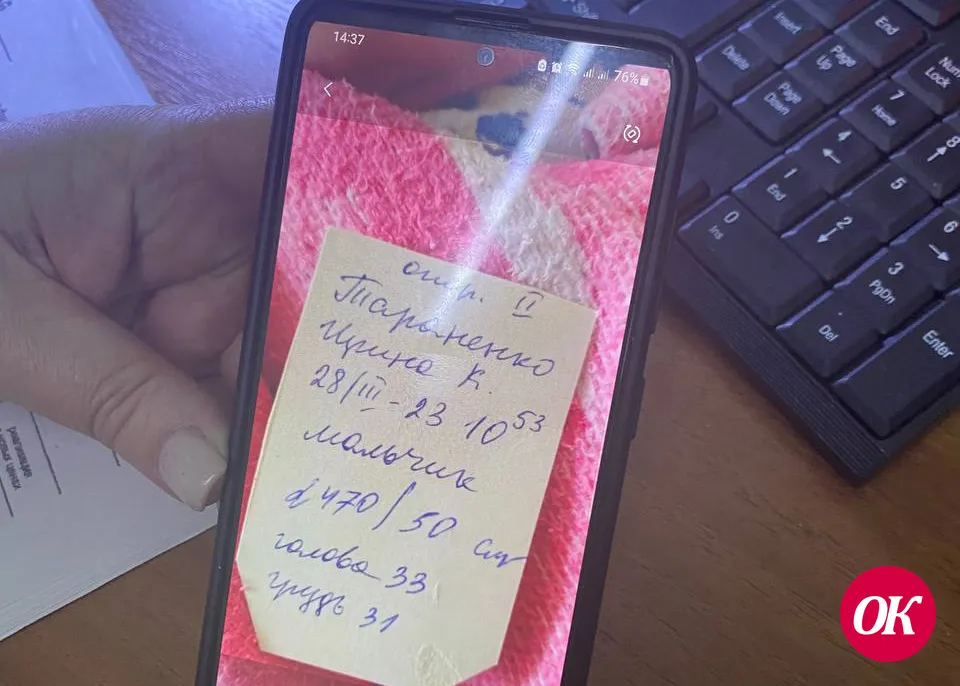 14:37
76%
опер. II
Тараненко
Ирина К.
28/III-23 10 53
мальчик
2470/50 см
голова 33
грудь 31
OK
Delete
Insert
End
Page Up
Page Down
Num Lock
7 Home
8
4
5
6
1 End
2
3 PgDn
0 Ins
Del
Enter